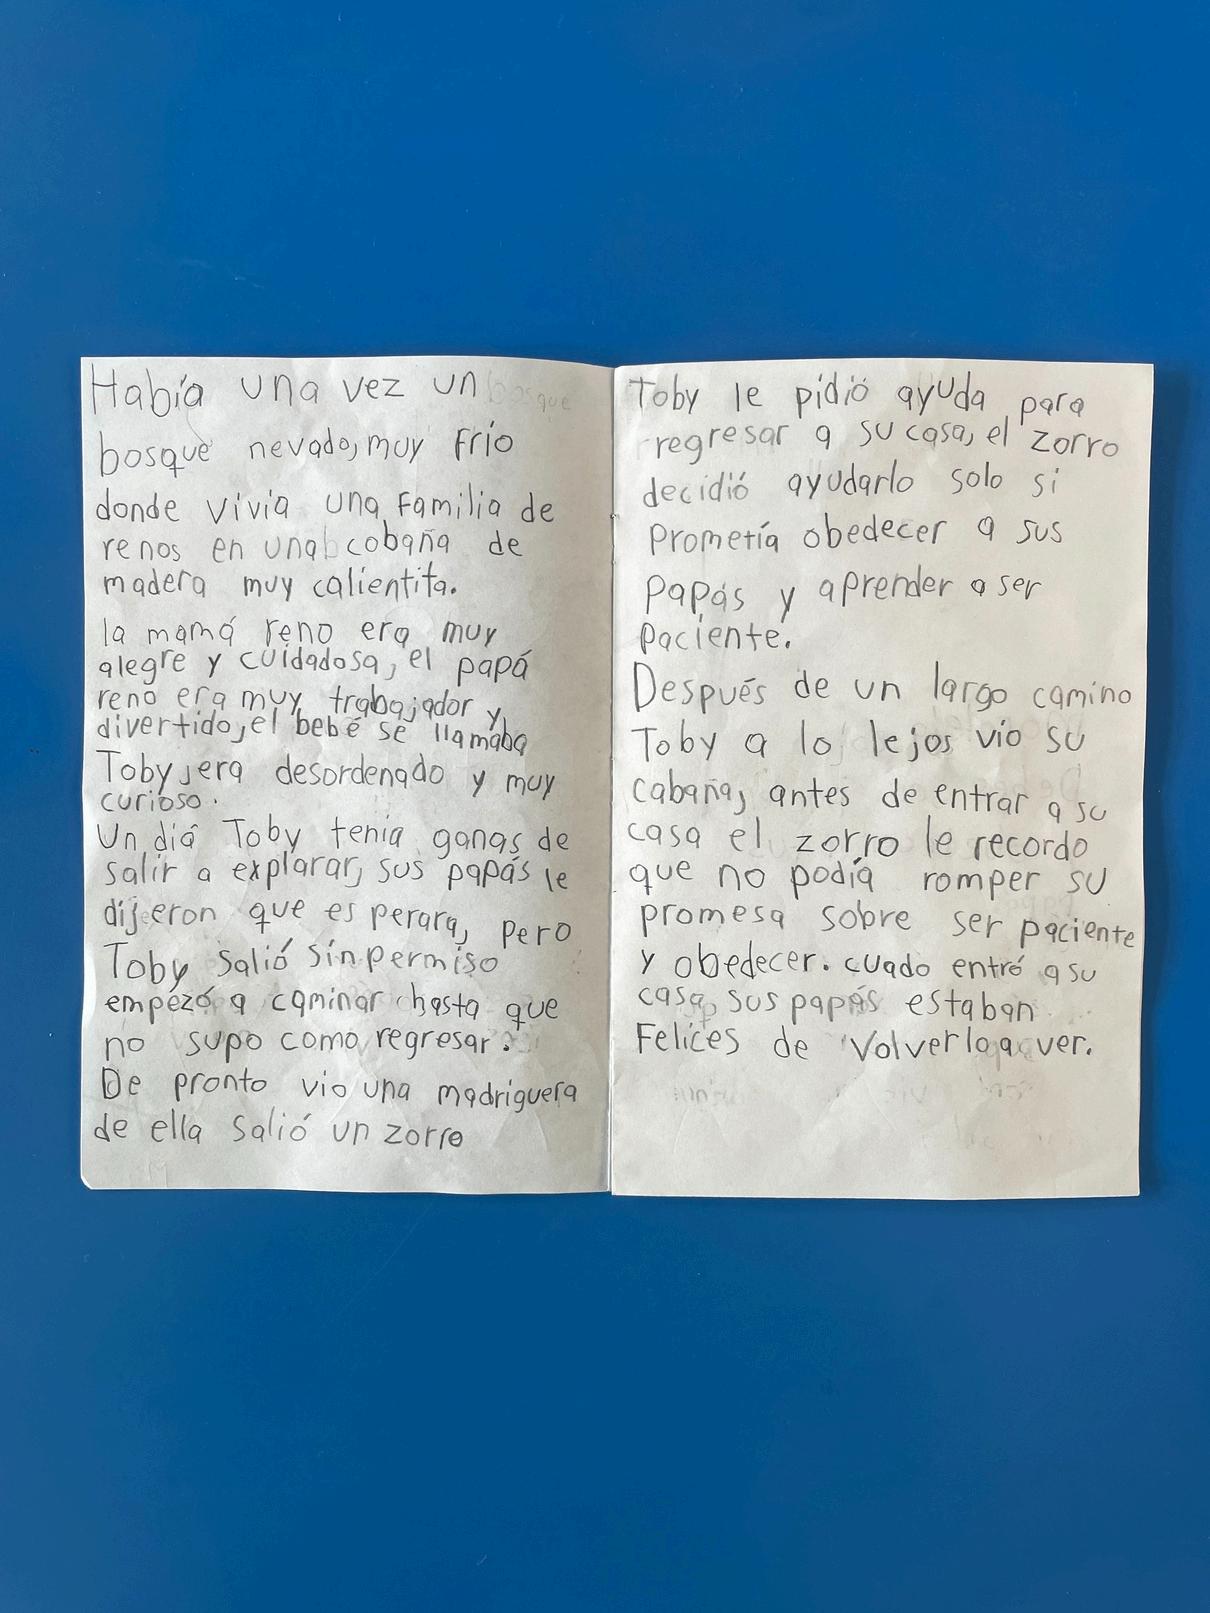 Había una vez un
bosque nevado, muy frio
donde vivia una familia de
renos en una cobaña de
madera muy calientita.
la mamá reno era muy
alegre y cuidadosa, el papá
reno era muy trabajador y
divertido, el bebé se llamaba
Toby, era desordenado y muy
curioso.
Un diá Toby tenia ganas de
salir a explarar, sus papás le
dijeron que es perara, pero
Toby salió sin permiso
empezó a caminar hasta que
no supo como regresar.
De pronto vio una madriguera
de ella salió un zorro
Toby le pidió ayuda para
regresar a su casa, el zorro
decidió ayudarlo solo si
prometía obedecer a sus
papás y aprender a ser
paciente.
Después de un largo camino
Toby a lo lejos vio su
cabaña, antes de entrar a su
casa el zorro le recordo
que no podía romper su
promesa sobre ser paciente
y obedecer. cuado entró a su
casa, sus papás estaban
Felices de volverlo a ver.